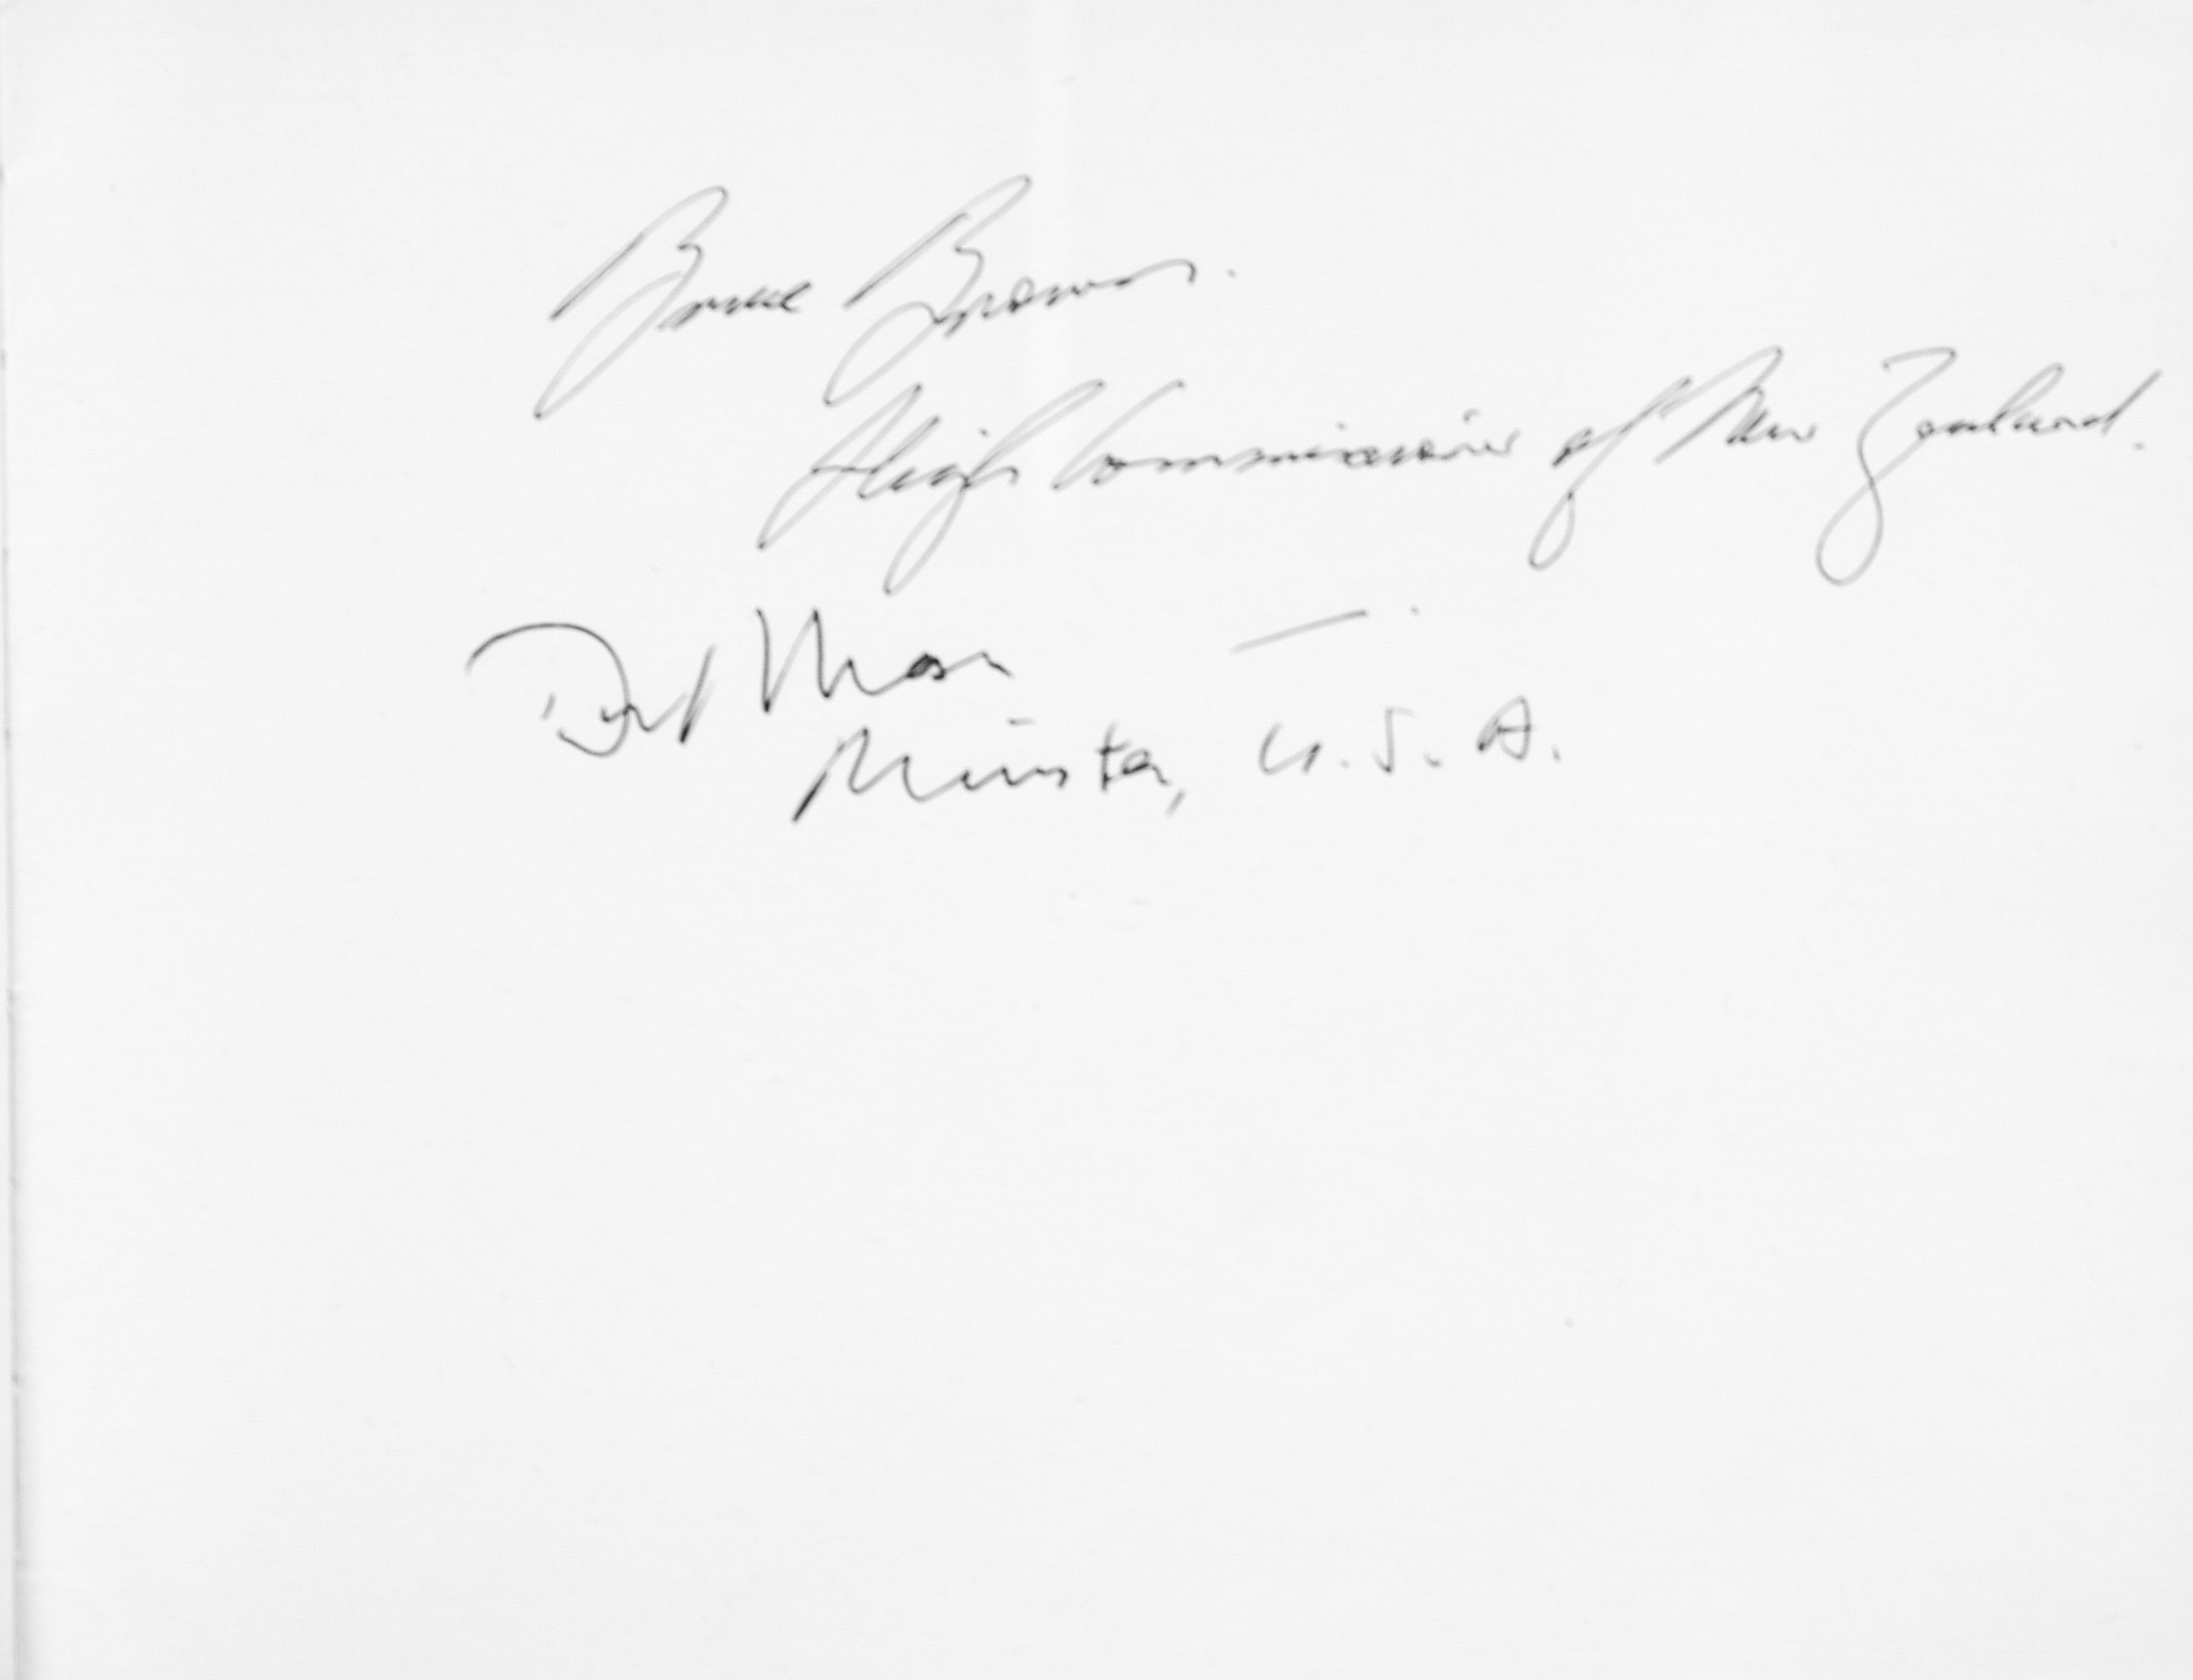 Bruce Brown.
High Commissioner of New Zealand.
Minister, U.S.A.